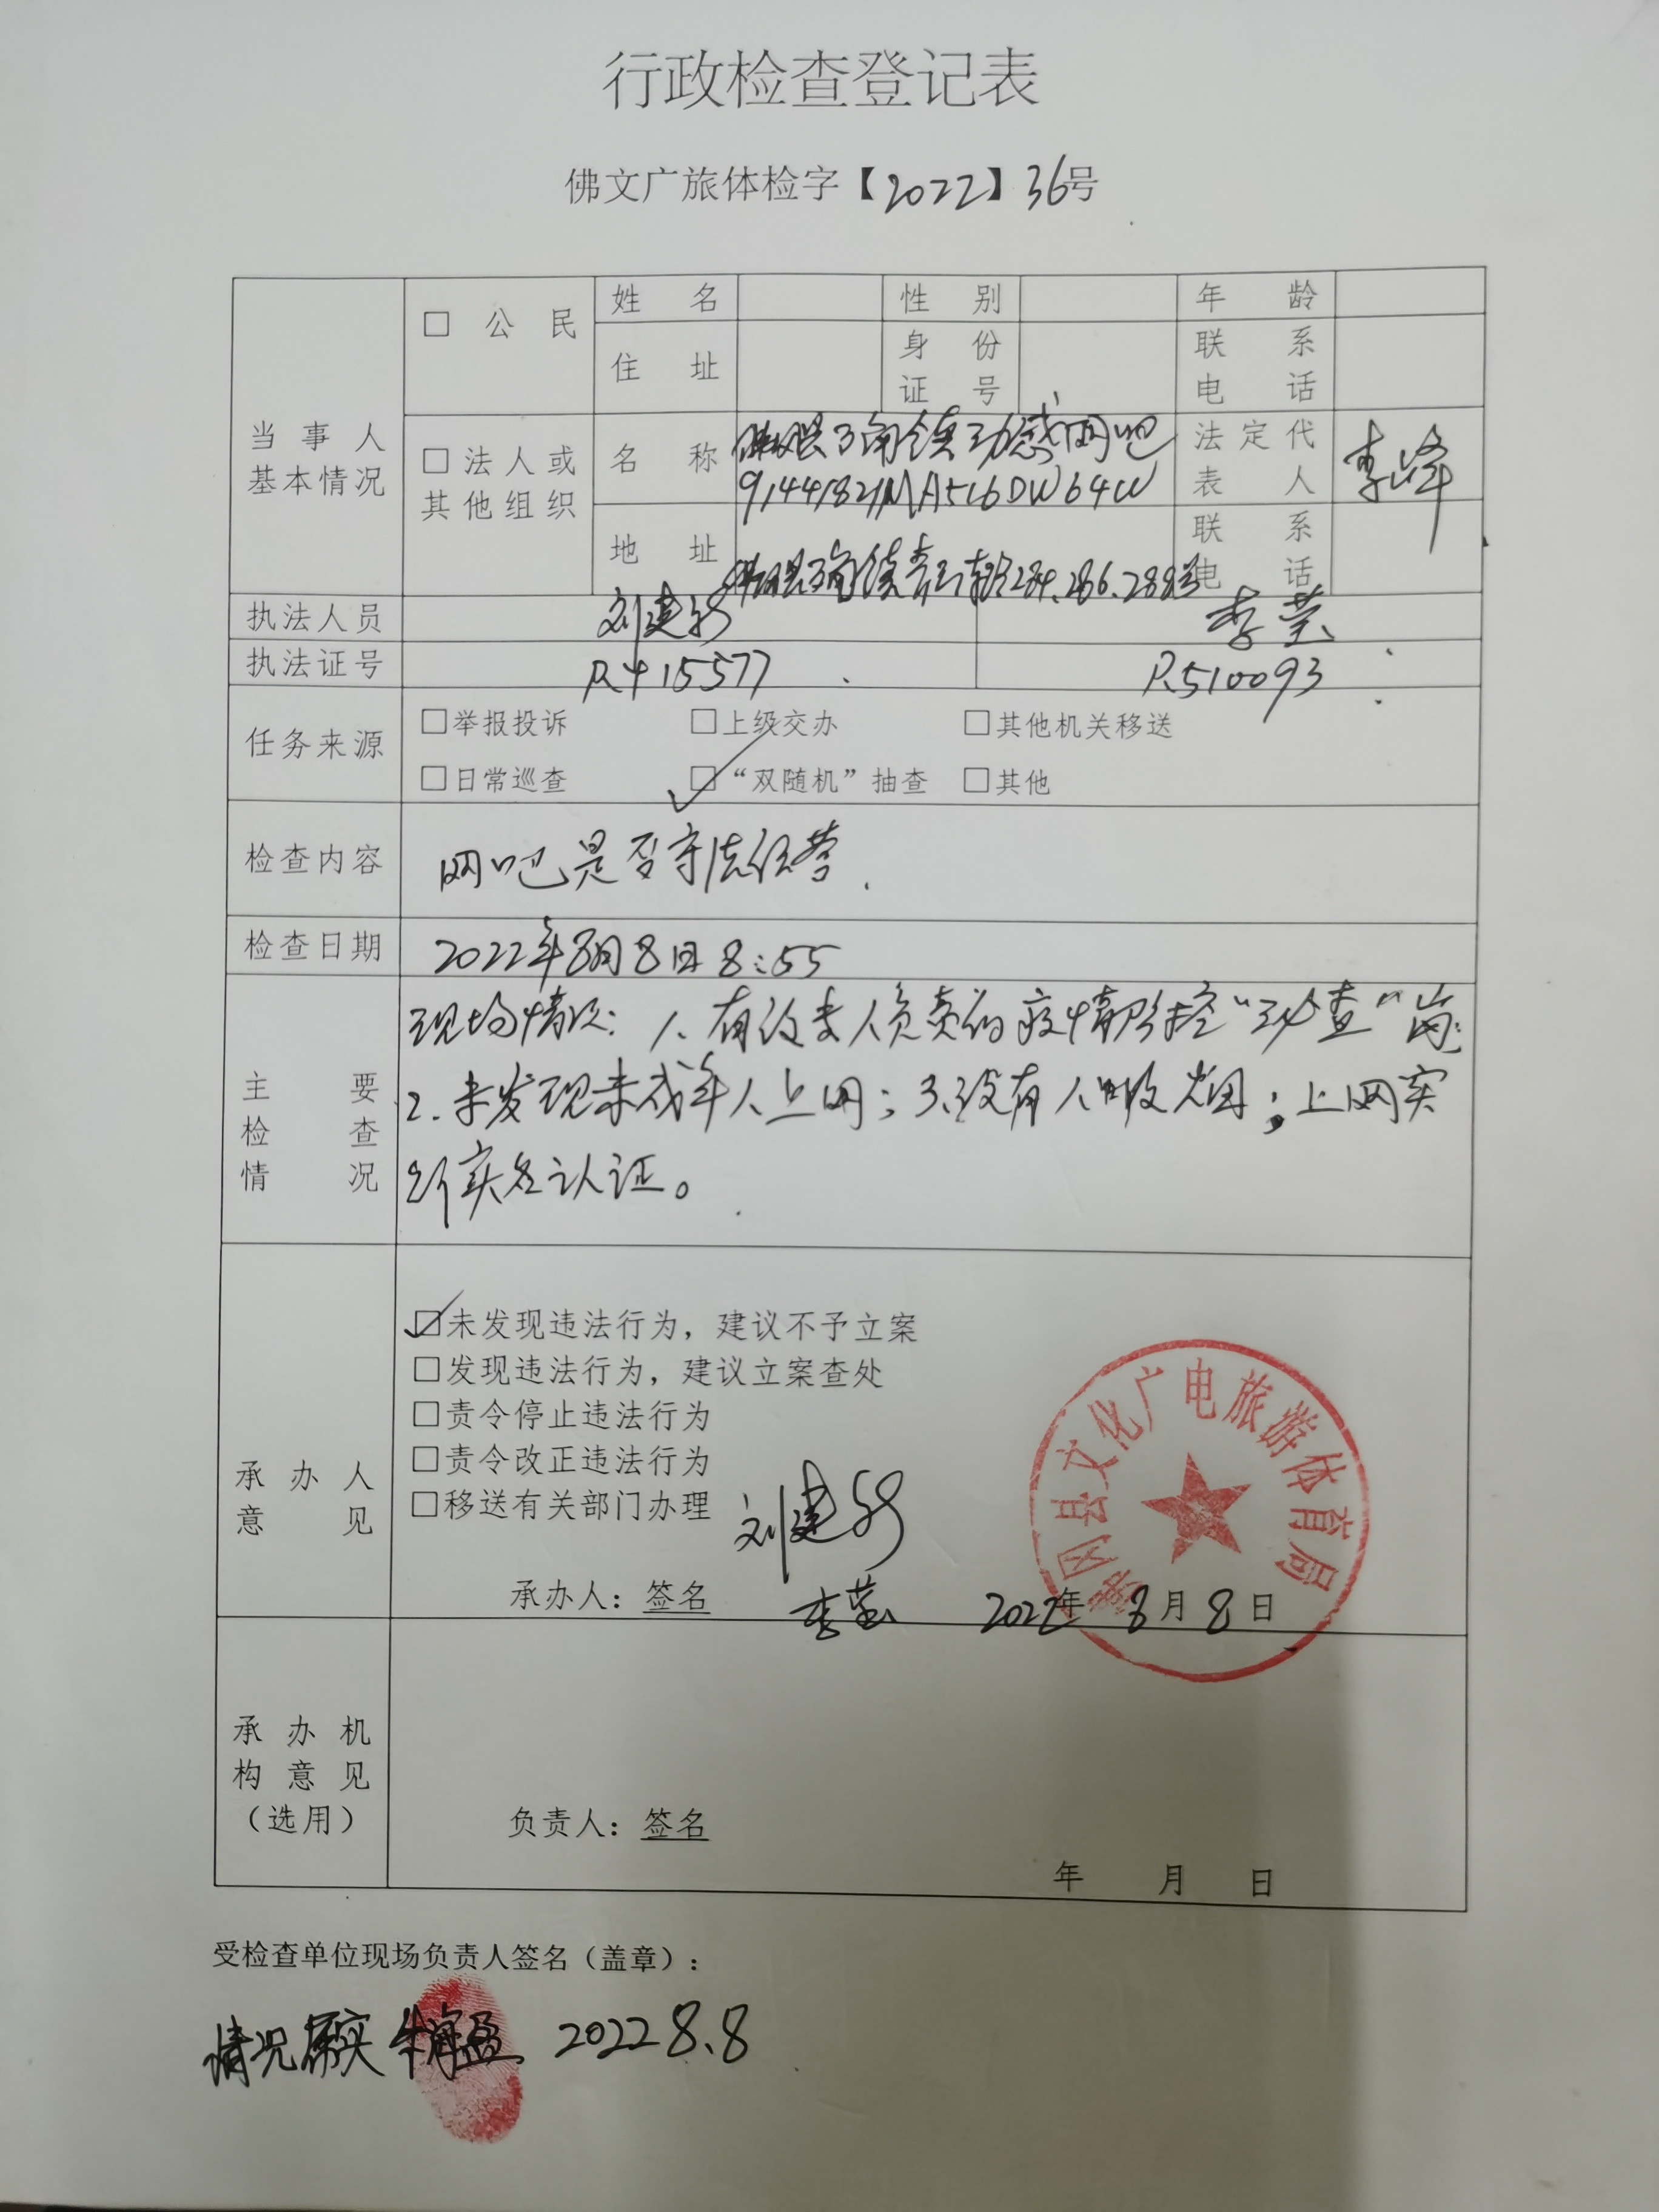 行政检查登记表
佛文广旅体检字【2022】36号
当事人
基本情况
□ 公民
姓名
性别
年龄
住址
身份
证号
联系
电话
□法人或
其他组织
名称
佛冈县石角镇动感网吧
91441821MA516DW64W
法定代
表人
李峰
地址
284.286.288号
联系
电话
执法人员
刘建新
李莹
执法证号
R415577
R510093
任务来源
□举报投诉 □上级交办 □其他机关移送
□日常巡查 ☑“双随机”抽查 □其他
检查内容
网吧是否守法经营.
检查日期
2022年8月8日8:55
主要
检查
情况
现场情况:1.有设专人负责的疫情防控“三查”岗;
2.未发现未成年人上网;3.没有人吸烟;上网实
行实名认证。
承办人
意见
☑未发现违法行为，建议不予立案
□发现违法行为，建议立案查处
□责令停止违法行为
□责令改正违法行为
□移送有关部门办理
刘建新
承办人：签名 李莹 2022年8月8日
佛冈县文化广电旅游体育局
承办机
构意见
（选用）
负责人：签名
年 月 日
受检查单位现场负责人签名（盖章）：
情况属实 2022 8.8